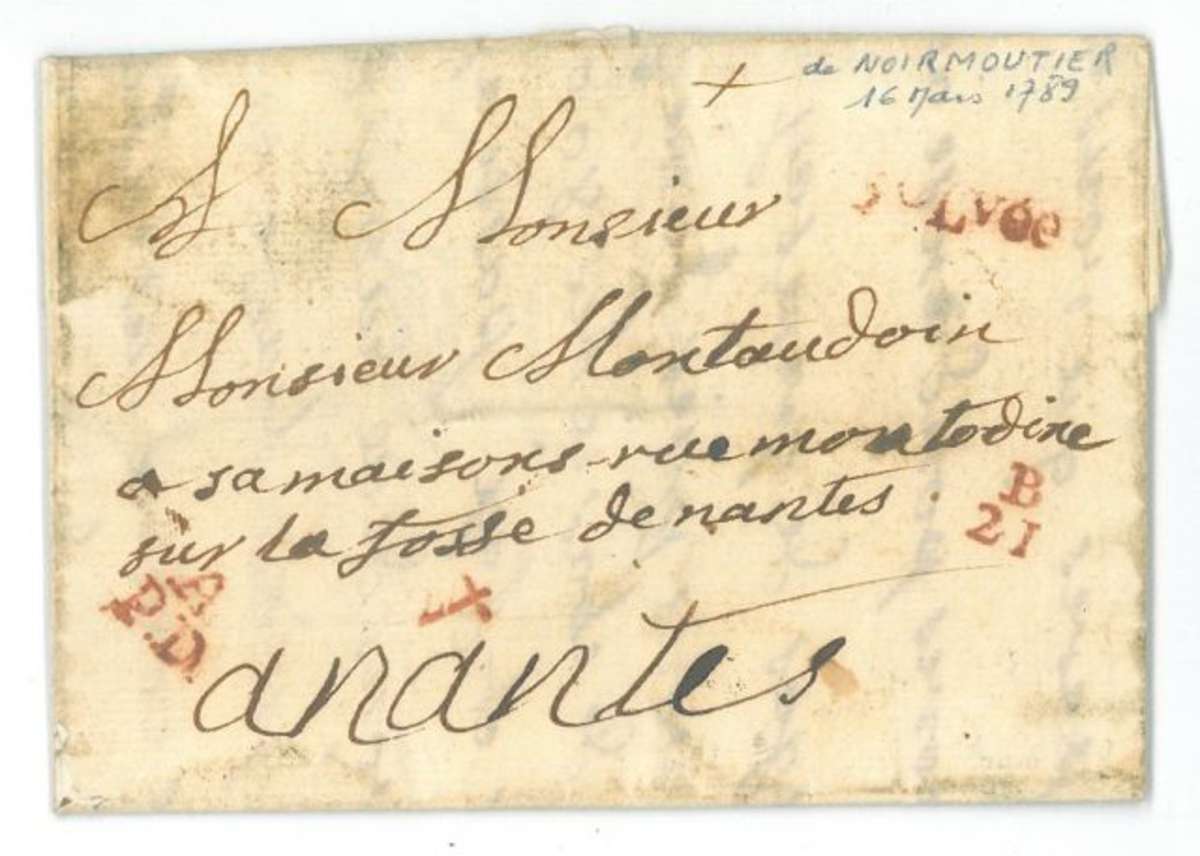 de NOIRMOUTIER
16 Mars 1789
A Monsieur
Monsieur Montaudoin
a sa maisons rue montodine
sur la fosse de nantes.
B
21
P.P
P.D
a nantes